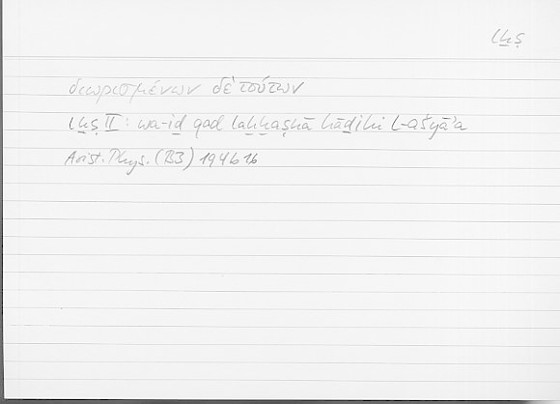 lḫṣ
διωρισμένων δὲ τούτων
lḫṣ II: wa-iḏ qad laḫḫaṣnā hāḏihi l-ašyāʾa
Arist. Phys. (B3) 194b16